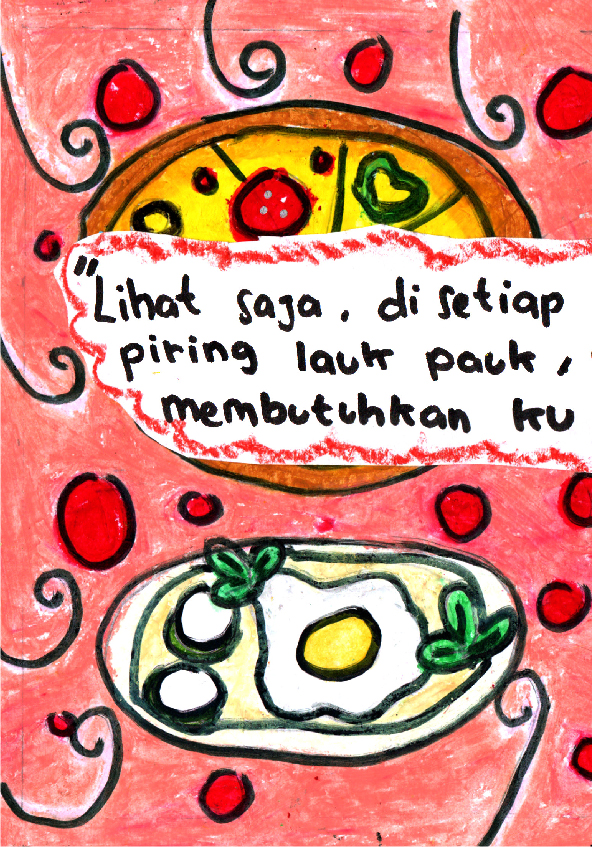 "Lihat saja, di setiap
piring lauk pauk,
membutuhkan ku